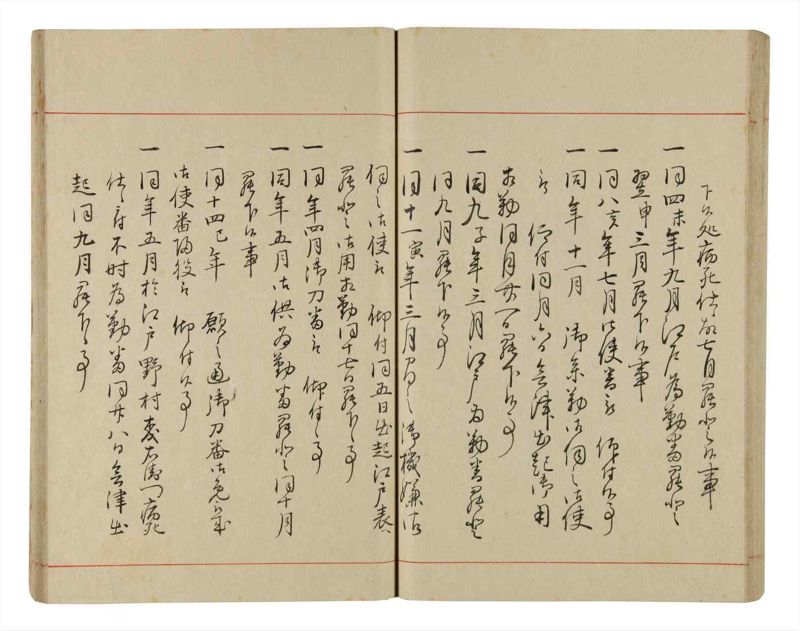 下候処病死仕候故七月罷登候事
一同四未年九月江戸為勤番罷登
翌申三月罷下候事
一同八亥年七月御使番被 仰付候事
一同年十一月 御参勤御伺之御使
被 仰付同月六日会津出起御用
相勤同月廿一日罷下候事
一同九子年三月江戸為勤番罷登
同九月罷下候事
一同十一寅年三月 御機嫌御
伺之御使被 仰付同五日出起江戸表へ
罷登御用相勤同十七日罷下候事
一同年四月御刀番被 仰付候事
一同年五月御供為勤番罷登同十月
罷下候事
一同十四巳年 願之通御刀番御免
御使番帰役被 仰付候事
一同年五月於江戸野村 病死
仕候付不時為勤番同廿八日会津出
起同九月罷下候事